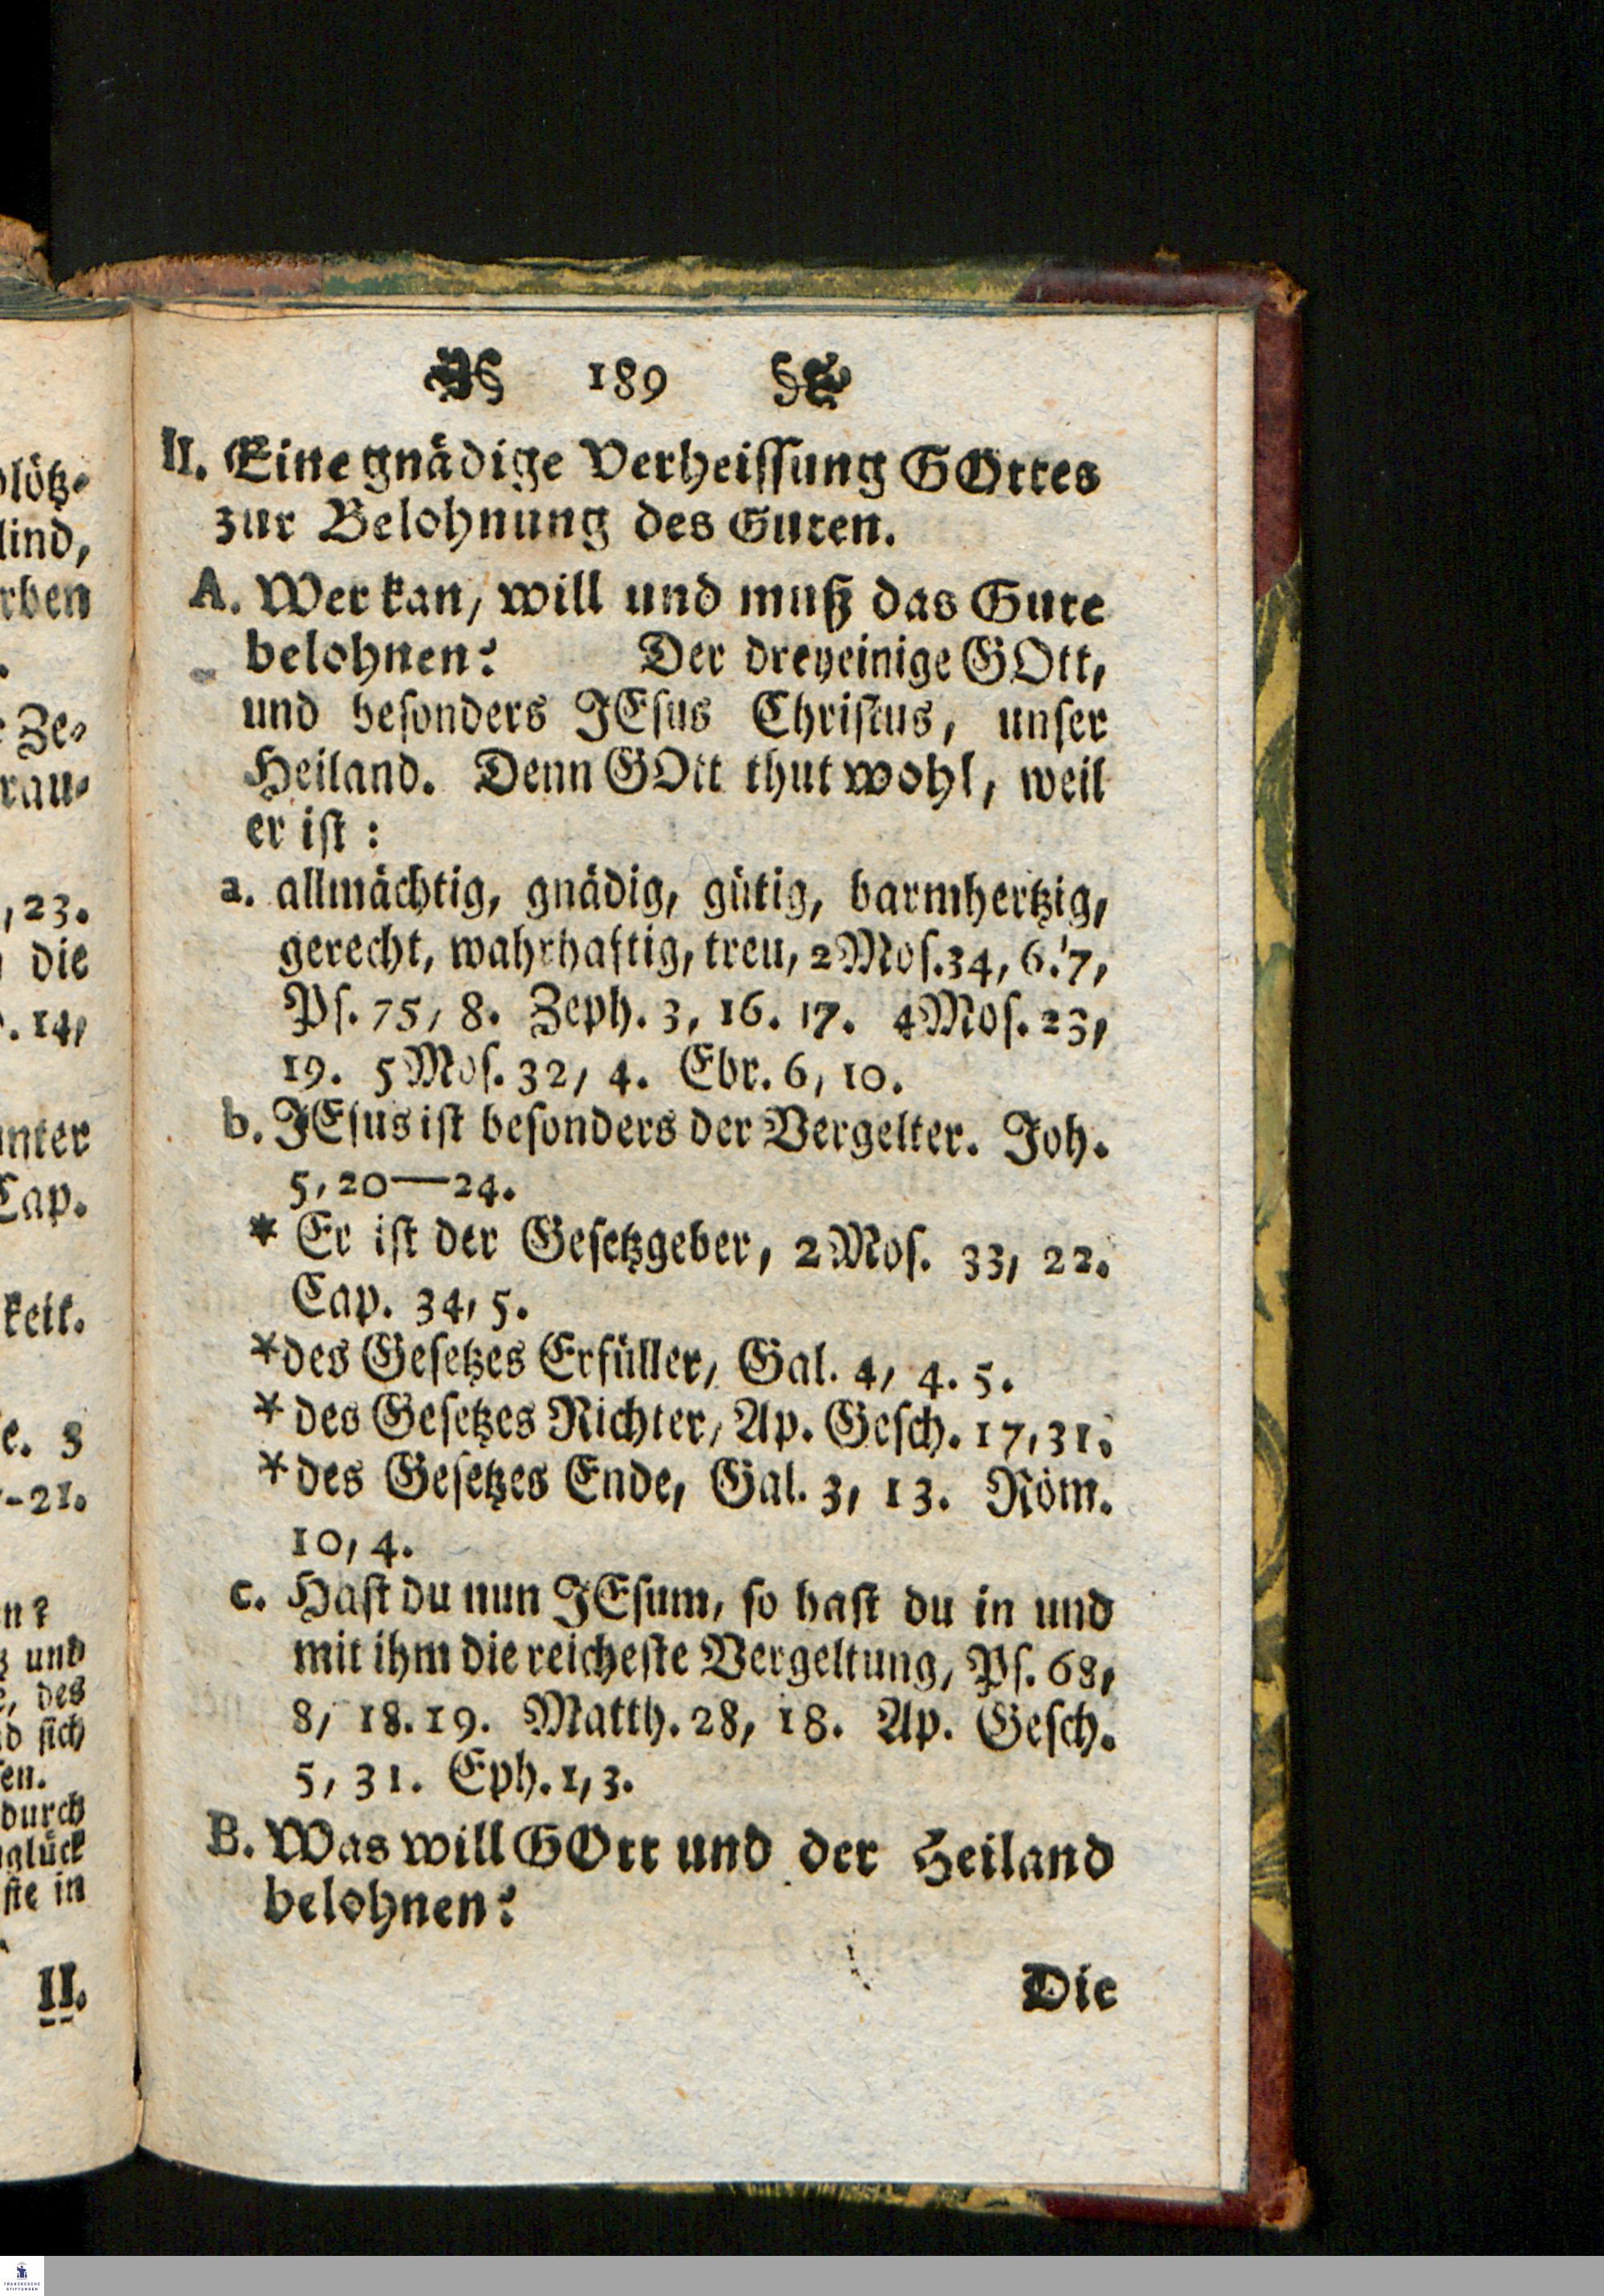 189
II. Eine gnädige Verheissung GOttes
zur Belohnung des Guten.
A. Wer kan, will und muß das Gute
belohnen? Der dreyeinige GOtt,
und besonders JEsus Christus, unser
Heiland. Denn GOtt thut wohl, weil
er ist:
a. allmächtig, gnädig, gütig, barmhertzig,
gerecht, wahrhaftig, treu, 2 Mos. 34, 6. 7,
Ps. 75, 8. Zeph. 3, 16. 17. 4 Mos. 23,
19. 5 Mos. 32, 4. Ebr. 6, 10.
b. JEsus ist besonders der Vergelter. Joh.
5, 20—24.
* Er ist der Gesetzgeber, 2 Mos. 33, 22.
Cap. 34, 5.
* des Gesetzes Erfüller, Gal. 4, 4. 5.
* des Gesetzes Richter, Ap. Gesch. 17, 31.
* des Gesetzes Ende, Gal. 3, 13. Röm.
10, 4.
c. Hast du nun JEsum, so hast du in und
mit ihm die reicheste Vergeltung, Ps. 68,
8, 18. 19. Matth. 28, 18. Ap. Gesch.
5, 31. Eph. 1, 3.
B. Was will GOtt und der Heiland
belohnen?
Die